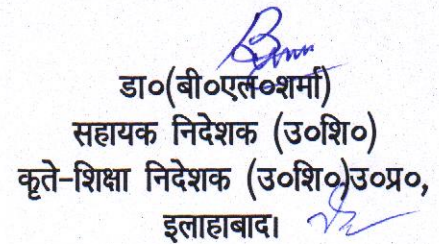 डा०(बी०एल०शर्मा)
सहायक निदेशक (उ०शि०)
कृते-शिक्षा निदेशक (उ०शि०)उ०प्र०,
इलाहाबाद।